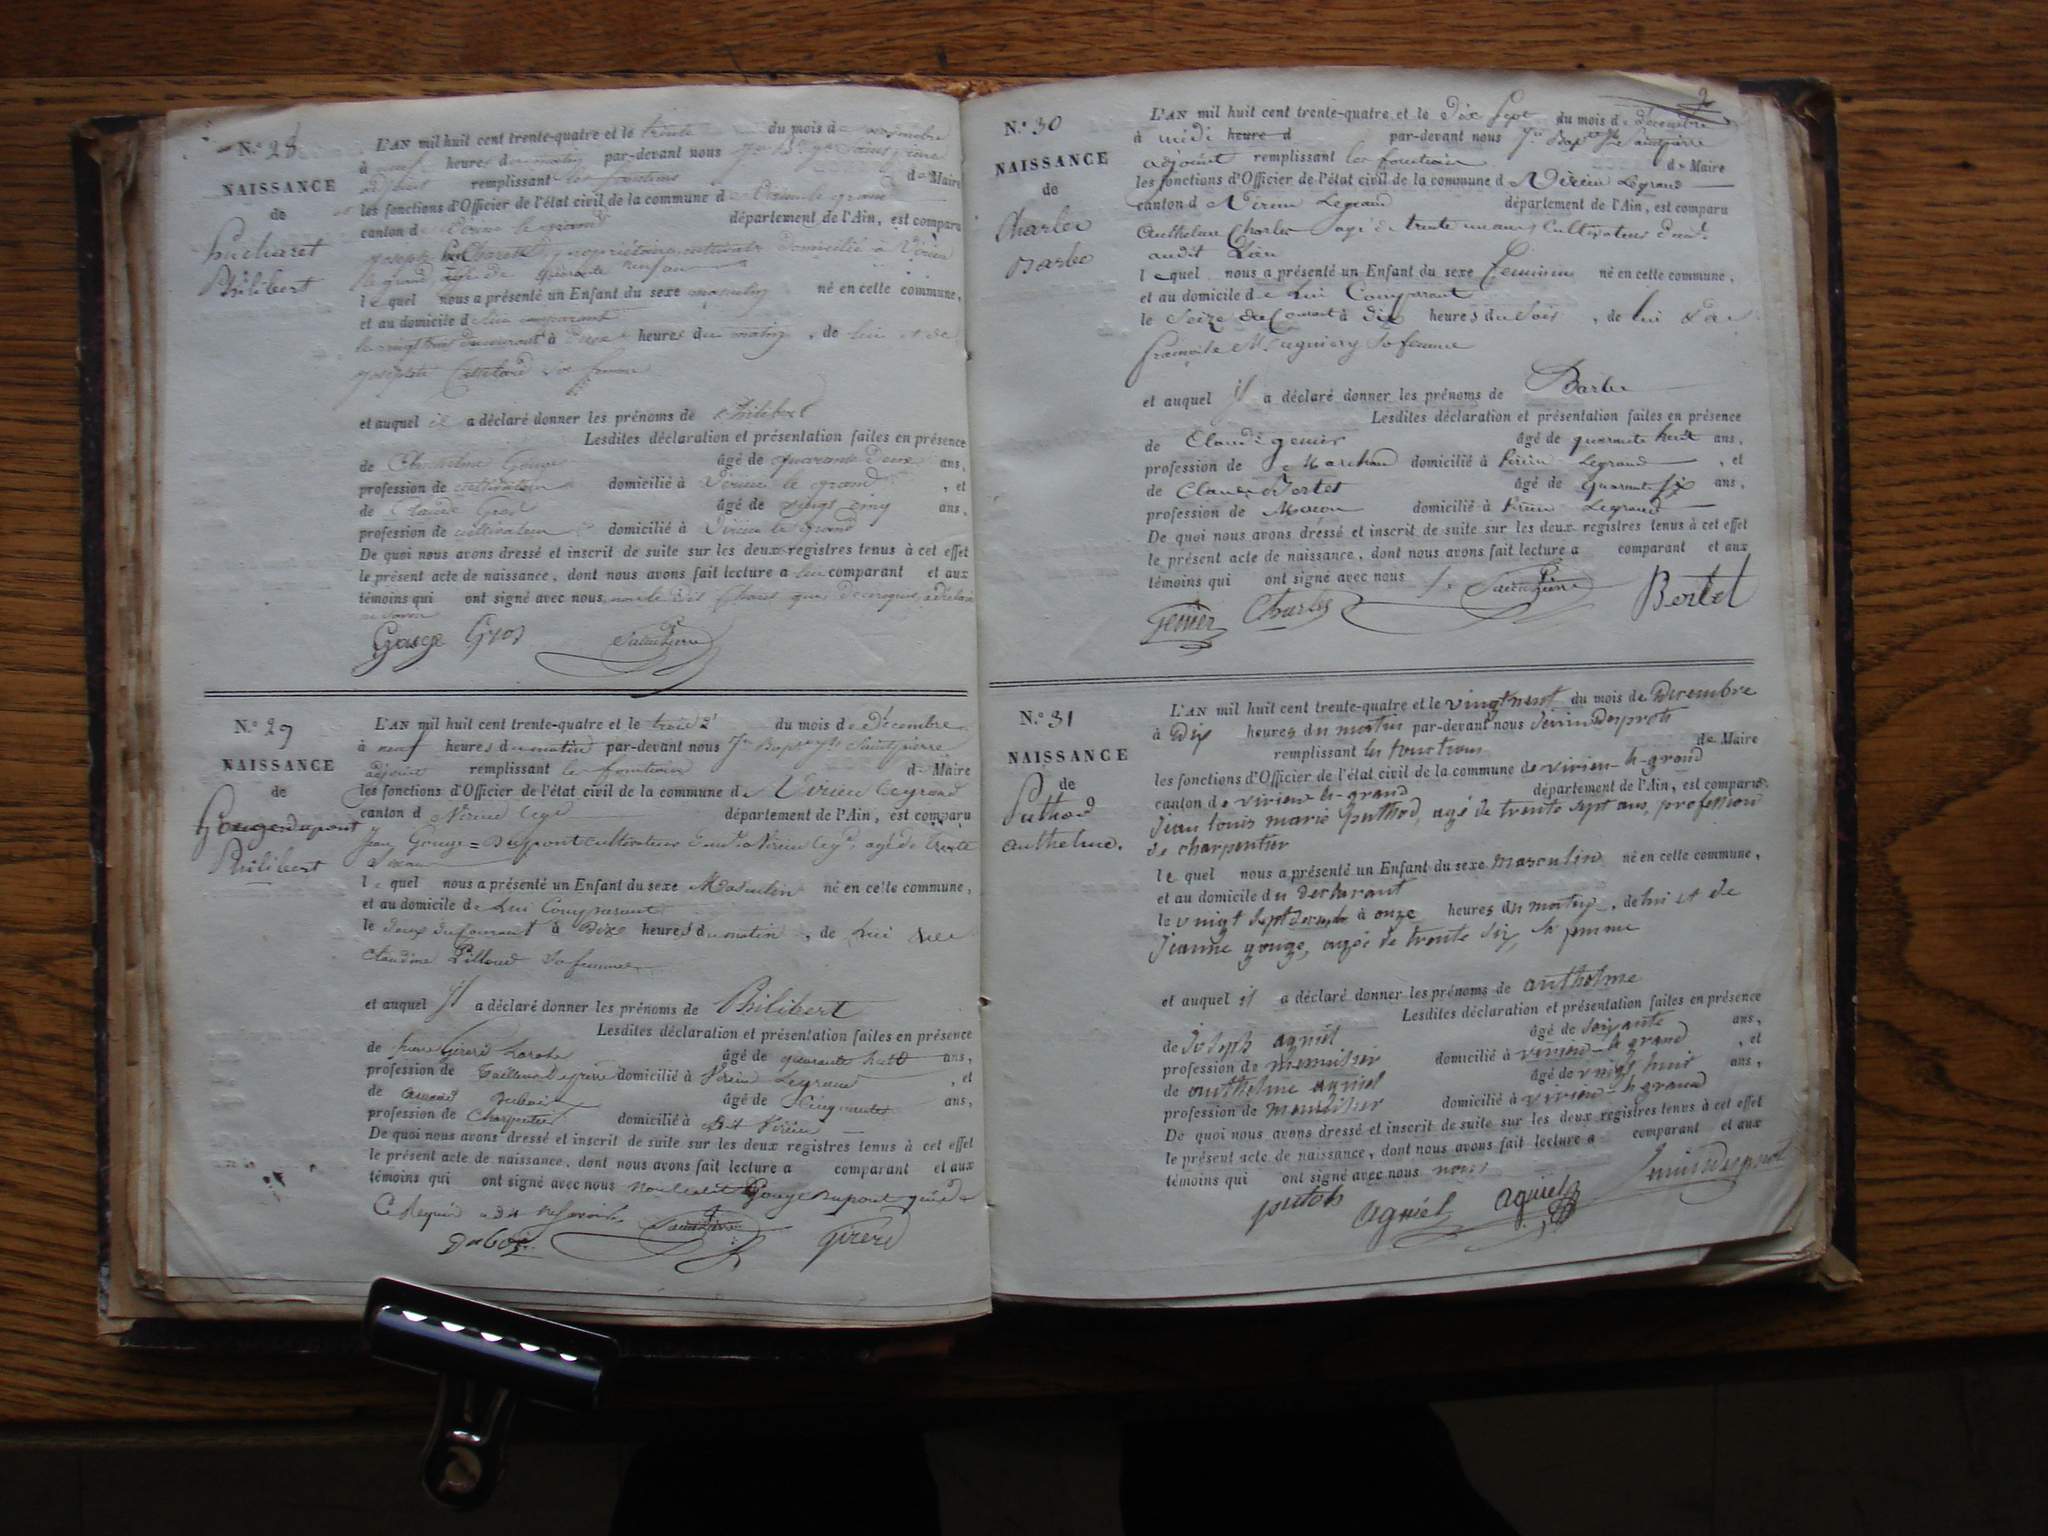 N.º 28
NAISSANCE
de
Philibert
L'AN mil huit cent trente-quatre et le trente du mois de novembre
à neuf heures du matin par-devant nous
adjoint remplissant les fonctions de Maire
les fonctions d'Officier de l'état civil de la commune de Virieu le grand
canton de Virieu le grand département de l'Ain, est comparu
Joseph propriétaire cultivateur domicilié à Virieu
le grand âgé de quarante un ans
lequel nous a présenté un Enfant du sexe masculin né en cette commune,
et au domicile de lui comparant
le vingt du courant à heures du matin, de lui et de
Josephte sa femme
et auquel il a déclaré donner les prénoms de Philibert
Lesdites déclaration et présentation faites en présence
de Anthelme Gouge âgé de quarante deux ans,
profession de cultivateur domicilié à Virieu le grand, et
de Claude Gros âgé de vingt cinq ans,
profession de cultivateur domicilié à Virieu le grand
De quoi nous avons dressé et inscrit de suite sur les deux registres tenus à cet effet
le présent acte de naissance, dont nous avons fait lecture au comparant et aux
témoins qui ont signé avec nous, non le dit
Gouge Gros Saintpierre
N.º 29
NAISSANCE
de
Gouge dupont
Philibert
L'AN mil huit cent trente-quatre et le trois du mois de décembre
à neuf heures du matin par-devant nous Saintpierre
adjoint remplissant les fonctions de Maire
les fonctions d'Officier de l'état civil de la commune de Virieu legrand
canton de Virieu département de l'Ain, est comparu
Jean Gouge = Dupont cultivateur à Virieu âgé de trente
lequel nous a présenté un Enfant du sexe Masculin né en cette commune,
et au domicile de Lui Comparant
le deux du Courant à Dix heures du matin, de Lui et de
Claudine Pilloud sa femme
et auquel il a déclaré donner les prénoms de Philibert
Lesdites déclaration et présentation faites en présence
de Girerd âgé de quarante huit ans,
profession de tailleur de pierre domicilié à Virieu Legrand, et
de Dubois âgé de Cinquante ans,
profession de Charpentier domicilié à Virieu
De quoi nous avons dressé et inscrit de suite sur les deux registres tenus à cet effet
le présent acte de naissance, dont nous avons fait lecture a comparant et aux
témoins qui ont signé avec nous non ledit Gouge Dupont
Ce Requis a dit
Dubois Saintpierre Girerd
N.º 30
NAISSANCE
de
Charles
Barbe
L'AN mil huit cent trente-quatre et le dix sept du mois de décembre
à midi heure d par-devant nous Saintpierre
adjoint remplissant les fonctions de Maire
les fonctions d'Officier de l'état civil de la commune de Virieu Legrand
canton de Virieu Legrand département de l'Ain, est comparu
Anthelme Charles agé de trente un ans Cultivateur
audit Lieu
lequel nous a présenté un Enfant du sexe Feminin né en cette commune,
et au domicile de Lui Comparant
le Seize du Courant à dix heures du Soir, de lui & de
sa femme
et auquel il a déclaré donner les prénoms de Barbe
Lesdites déclaration et présentation faites en présence
de Claude genier âgé de quarante huit ans,
profession de Marchand domicilié à Virieu Legrand, et
de Claude Bertet âgé de quarante six ans,
profession de Macon domicilié à Virieu Legrand
De quoi nous avons dressé et inscrit de suite sur les deux registres tenus à cet effet
le présent acte de naissance, dont nous avons fait lecture a comparant et aux
témoins qui ont signé avec nous Saintpierre Bertet
genier Charles
N.º 31
NAISSANCE
de
Puthod
anthelme.
L'AN mil huit cent trente-quatre et le vingt neuf du mois de Decembre
à Dix heures du matin par-devant nous
remplissant les fonctions de Maire
les fonctions d'Officier de l'état civil de la commune de virieu-le-grand
canton de virieu-le-grand département de l'Ain, est comparu
Jean louis marie puthod, agé de trente sept ans, profession
de charpentier
lequel nous a présenté un Enfant du sexe masculin né en cette commune,
et au domicile du declarant
le vingt sept decembre à onze heures du matin, de lui et de
Jeanne gouge, agée de trente six, sa femme
et auquel il a déclaré donner les prénoms de anthelme
Lesdites déclaration et présentation faites en présence
de Joseph agniel âgé de soixante ans,
profession de menuisier domicilié à virieu-le-grand, et
de anthelme agniel âgé de vingt huit ans,
profession de menuisier domicilié à virieu-le grand
De quoi nous avons dressé et inscrit de suite sur les deux registres tenus à cet effet
le présent acte de naissance, dont nous avons fait lecture a comparant et aux
témoins qui ont signé avec nous nous
putod agniel agniel